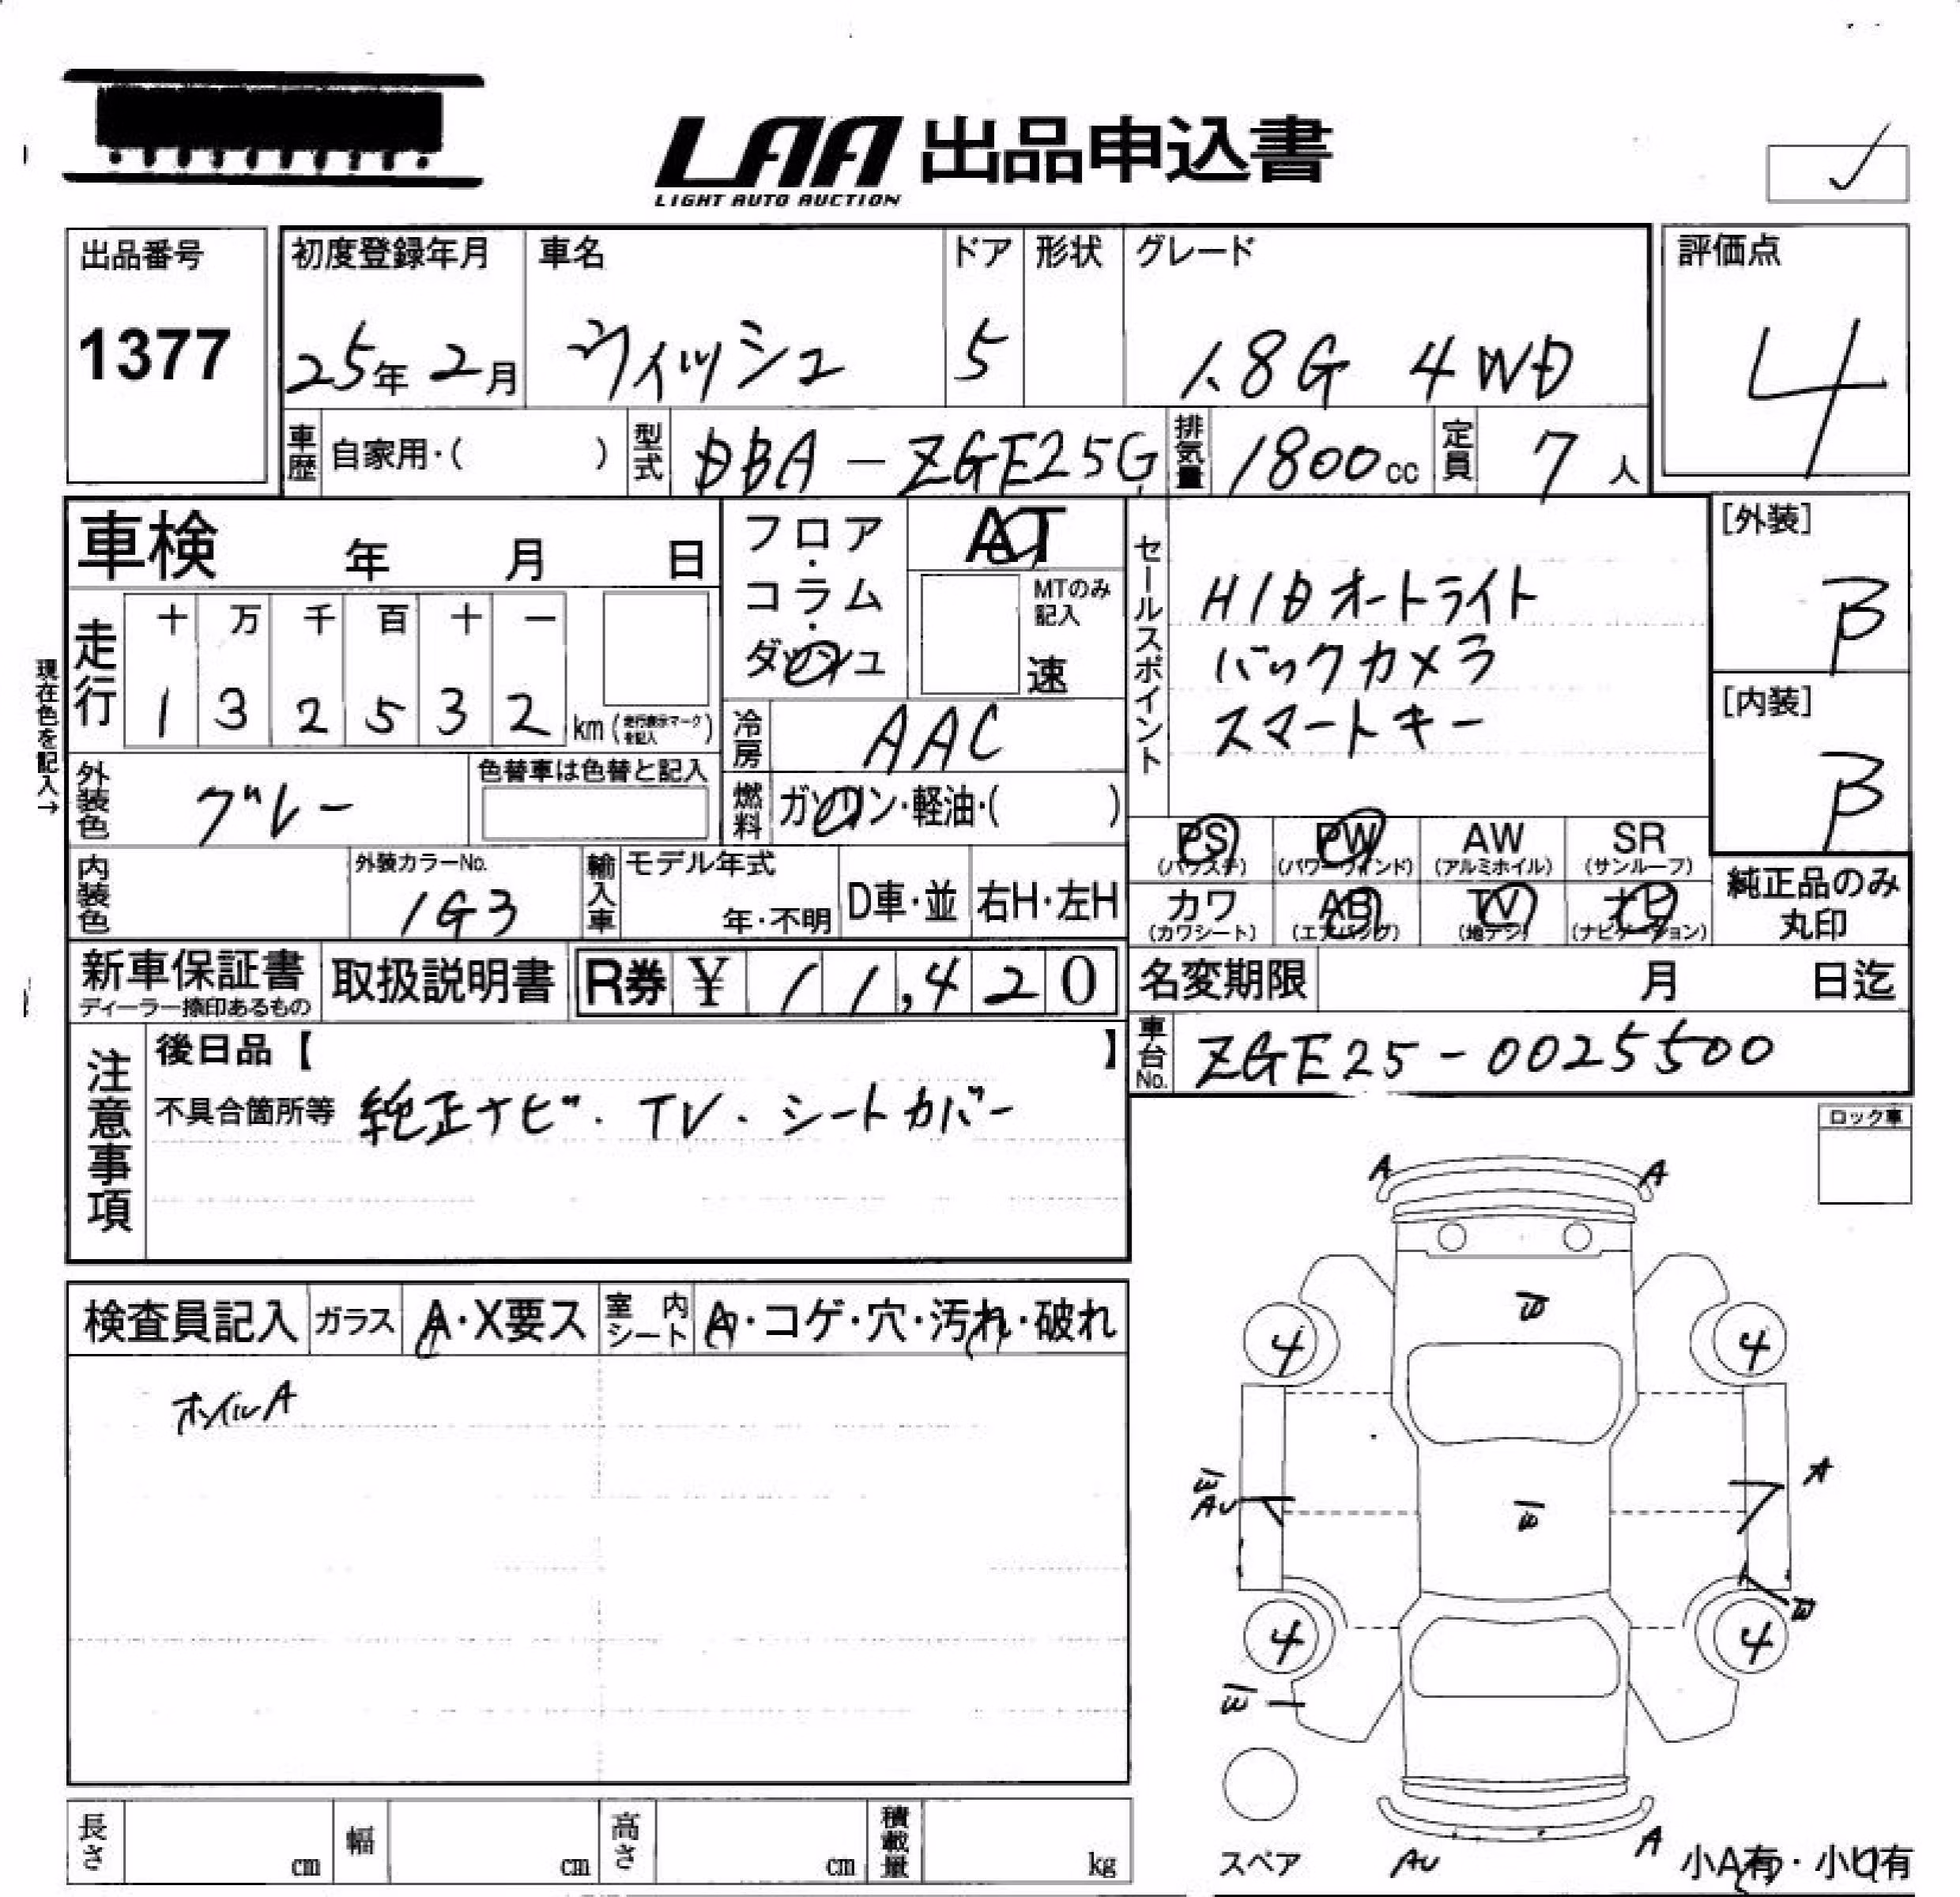 LAA 出品申込書
LIGHT AUTO AUCTION
出品番号
1377
初度登録年月 車名 ドア 形状 グレード
25年 2月 ウィッシュ 5 1.8G 4WD
評価点
4
車歴 自家用・( ) 型式 DBA-ZGE25G 排気量 1800cc 定員 7人
車検 年 月 日
フロア・コラム・ダッシュ
AT
MTのみ記入
速
セールスポイント
HIDオートライト
バックカメラ
スマートキー
[外装]
B
[内装]
B
現在色を記入→
走行
十 万 千 百 十 一
1 3 2 5 3 2 km (走行表示マークを記入)
冷房 AAC
外装色 グレー
色替車は色替と記入
燃料 ガソリン・軽油・( )
PS (パワステ) PW (パワーウィンド) AW (アルミホイル) SR (サンルーフ)
カワ (カワシート) AB (エアバッグ) TV (地デジ) ナビ (ナビゲーション)
純正品のみ丸印
内装色
外装カラーNo.
1G3
輸入車 モデル年式 年・不明 D車・並 右H・左H
新車保証書
ディーラー捺印あるもの
取扱説明書 R券 ¥ 11,420
名変期限 月 日迄
車台No. ZGE25-0025500
注意事項
後日品【 】
不具合箇所等 純正ナビ・TV・シートカバー
ロック車
検査員記入 ガラス A・X要ス 室内シート A・コゲ・穴・汚れ・破れ
ホイルA
A A
4 4
AU A
4 4
スペア AU A 小A有・小U有
長さ cm 幅 cm 高さ cm 積載量 kg